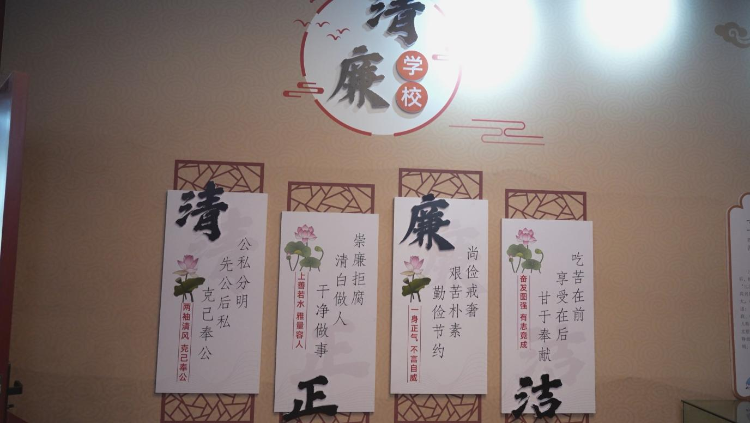 清廉
学校
清
公私分明
先公后私
克己奉公
两袖清风 克己奉公
崇廉拒腐
清白做人
干净做事
上善若水 雅量容人
正
廉
尚俭戒奢
艰苦朴素
勤俭节约
一身正气 不言自威
吃苦在前
享受在后
甘于奉献
奋发图强 有志竟成
洁